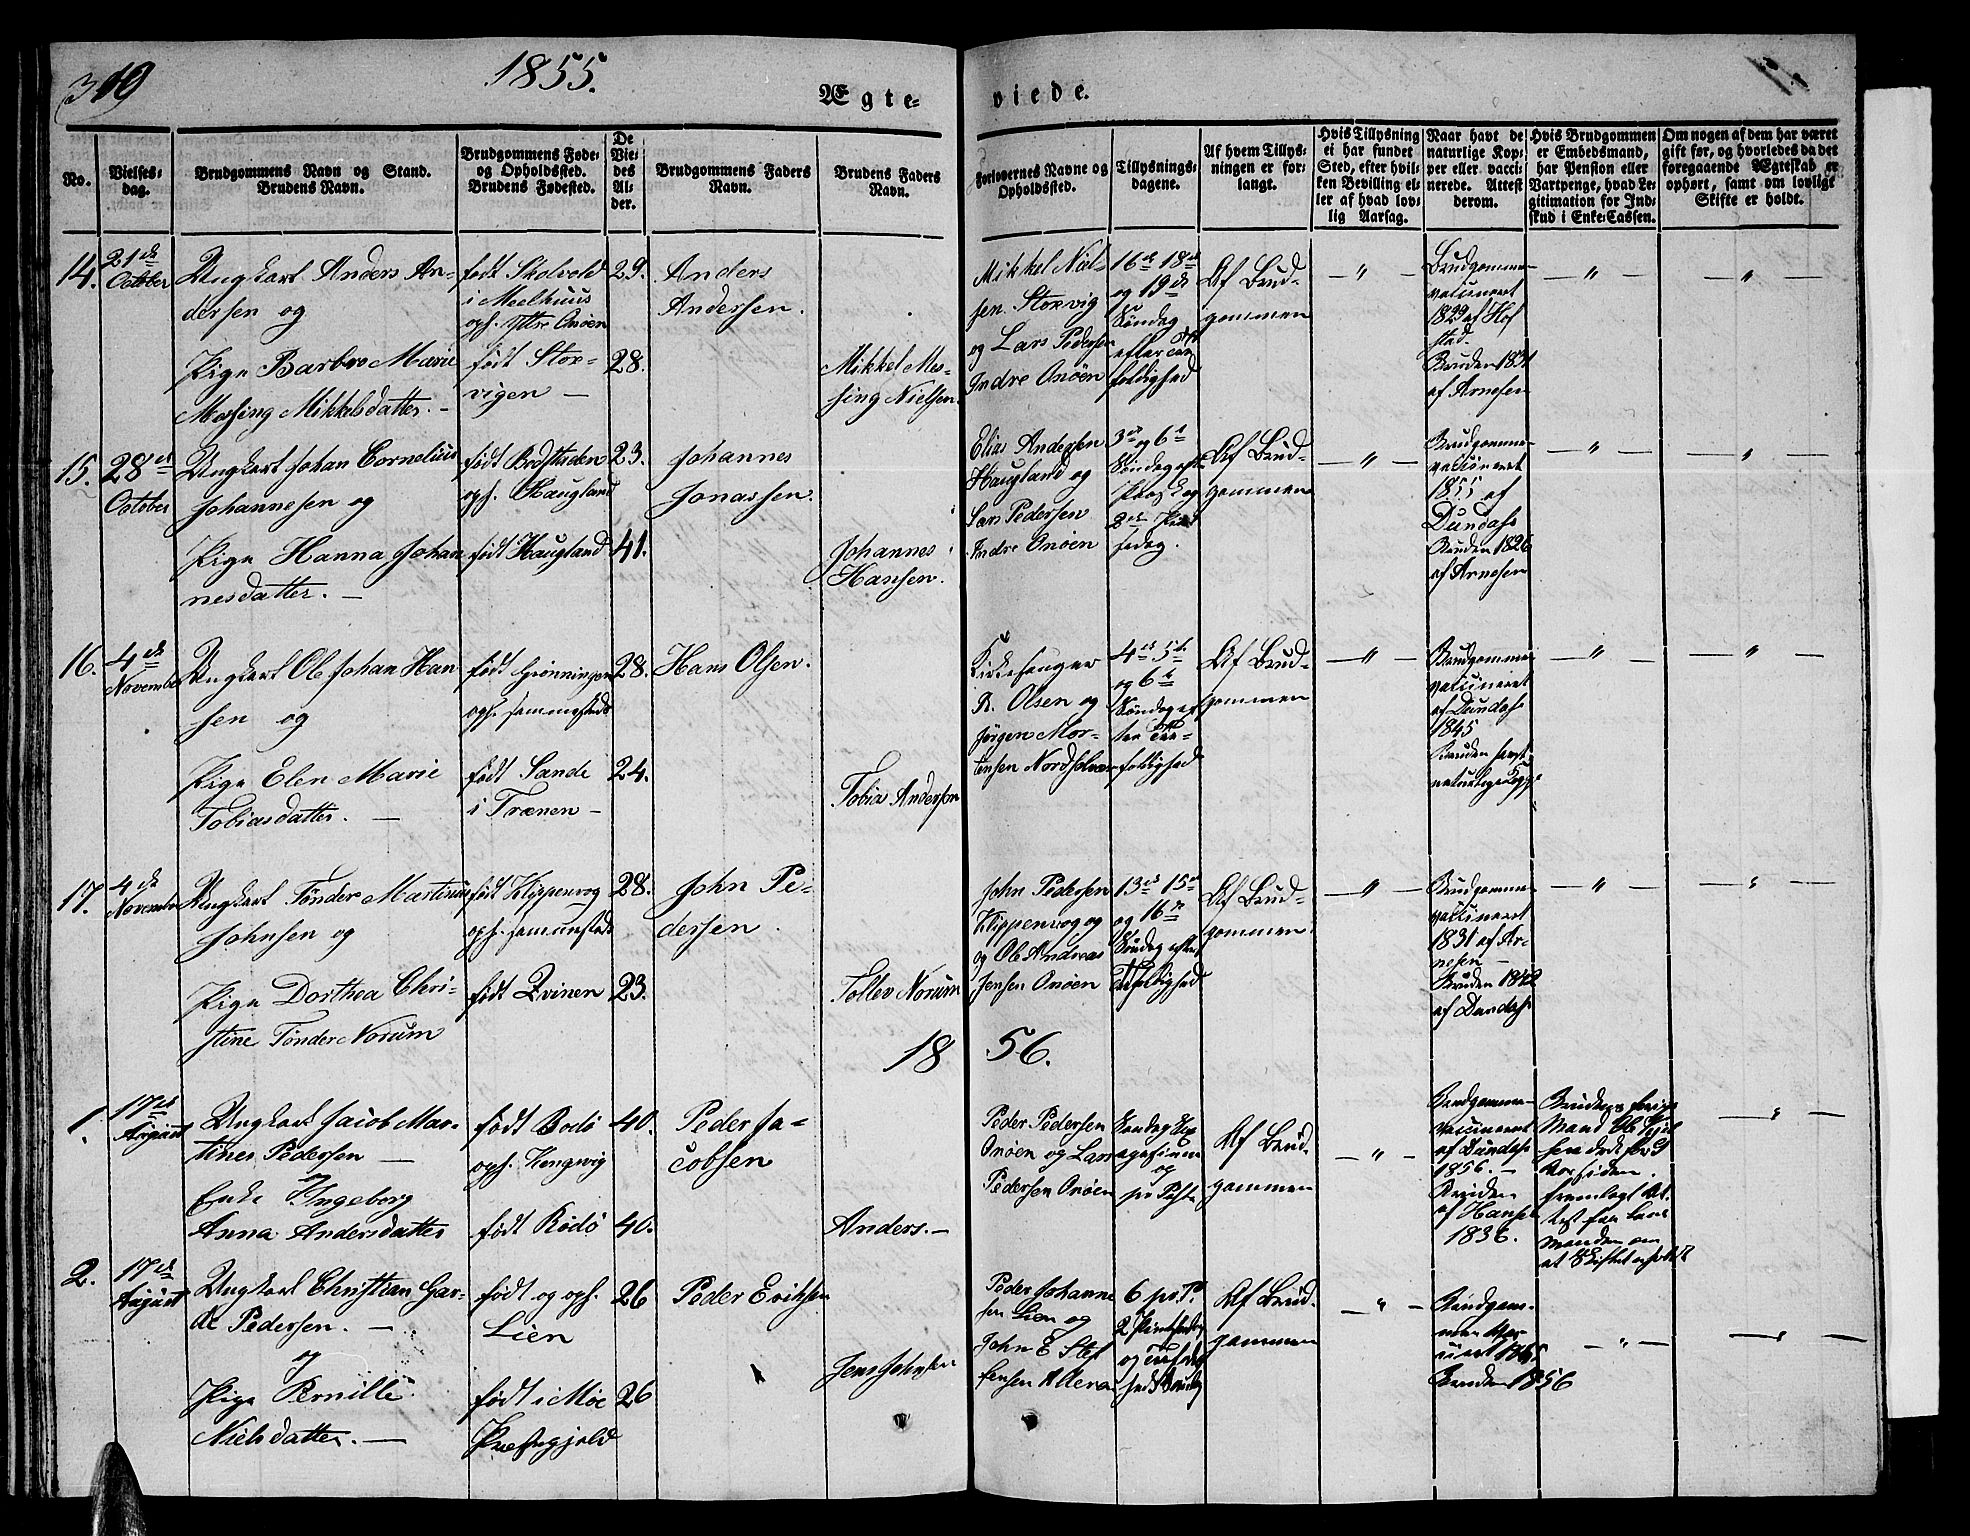 1855.
Ægte-
viede.
No.
Vielses-
dag.
Brudgommens Navn og Stand.
Brudens Navn.
Brudgommens Føde-
og Opholdssted.
Brudens Fødested.
De
Vie-
des
Al-
der.
Brudgommens Faders
Navn.
Brudens Faders
Navn.
Forlovernes Navne og
Opholdssted.
Tillysnings-
dagene.
Af hvem Tillys-
ningen er for-
langt.
Hvis Tillysning
ei har fundet
Sted, efter hvil-
ken Bevilling el-
ler af hvad lov-
lig Aarsag.
Naar havt de
naturlige Kop-
per eller vacci-
nerede. Attest
derom.
Hvis Brudgommen
er Embedsmand,
har Pension eller
Vartpenge, hvad Le-
gitimation for Ind-
skud i Enke-Cassen.
Om nogen af dem har været
gift før, og hvorledes da det
foregaaende Ægteskab er
ophørt, samt om lovligt
Skifte er holdt.
14.
21de
October
Ungkarl Anders An-
dersen og
Pige Barbro Marie
Messing Mikkelsdatter. —
født Skolvold
i Meelhuus
oph. Yttre Onöen
født Stor-
vigen —
29.
28.
Anders
Andersen.
Mikkel Mes-
sing Nielsen.
Mikkel Niel-
sen Storvig
og Lars Pedersen
Indre Onöen
16de 18de
og 19de
Söndag
efter
foldighed
Af Brud-
gommen
— " —
Brudgommen
vaccineret
1829 af Hof
stad.
Bruden 1831
af Arnesen
— " —
"
15.
28de
October
Ungkarl Johan Cornelius
Johannesen og
Pige Hanna Johan
nesdatter. —
født
oph. Haugland
født Haugland
23.
41.
Johannes
Jonassen.
Johannes
Hansen.
Elias Andersen
Haugland og
Lars Pedersen
Indre Onöen
3de og 6te
Söndag eft.
Paaske og
2den Pint
sedag.
Af Brud-
gommen
— " —
Brudgommen
vaccineret
1855 af
Dundas
Bruden 1826
af Arnesen
— " —
"
16.
4de
November
Ungkarl Ole Johan Han
sen og
Pige Elen Marie
Tobiasdatter. —
født Grönningen
oph. sammesteds
født Sande
i Trænen —
28.
24.
Hans Olsen.
Tobias Andersen
Kirkesanger
R. Olsen og
Jörgen Mor-
tensen Nordsolvær
4de 5te
og 6te
Söndag ef
ter Tre-
foldighed
Af Brud-
gommen
— " —
Brudgommen
vaccineret
af Dundas
1845
Bruden havt
naturlige Kopp.
— " —
— " —
17.
4de
November
Ungkarl Tönder Martinus
Johnsen og
Pige Dorthea Chri-
stine Tönder Norum
født Klippenvog
oph. sammesteds
født Qvinen
28.
23.
John Pe-
dersen.
Tollev Norum
John Pedersen
Klippenvog og
og Ole Andreas
Jensen Onöen
13de 15de
og 16de
Söndag efter
Trefoldighed
Af Brud-
gommen.
— " —
Brudgommen
vaccineret
1831 af Ar-
nesen —
Bruden 1842
af Dundas
— " —
— " —
1856.
1.
17de
August
Ungkarl Jacob Mar-
tines Pedersen —
og
Enke Ingeborg
Anna Andersdatter
født Bodö
oph. Kengsvig
født Rödö
40.
40.
Peder Ja-
cobsen
Anders. —
Peder Pedersen
Onöen og Lars
Pedersen Onöen
Söndag Sep
agesima
og
Af Brud-
gommen
— " —
Brudgommen
vaccineret
af Dundas
1856. —
Bruden
af Hansen
1836.
Brudens forige
Mand Ole
sen
fremlagt At-
test fra Lens
manden om
at Skiftet
— " —
2.
17de
August
Ungkarl Christian Gar-
de Pedersen. —
og
Pige Pernille
Nielsdatter. —
født og oph.
Lien
født i Moe
Præstegjeld
26
26
Peder Eriksen
Jens Johnsen
Peder Johanne
sen Lien og
John E Stef
fensen
6 p. P.
2 Pintsedag
og Trefoldig
heds Söndag
Af Brud-
gommen
— " —
Brudgom-
men vac-
cineret
Bruden 1856
— " —
— " —